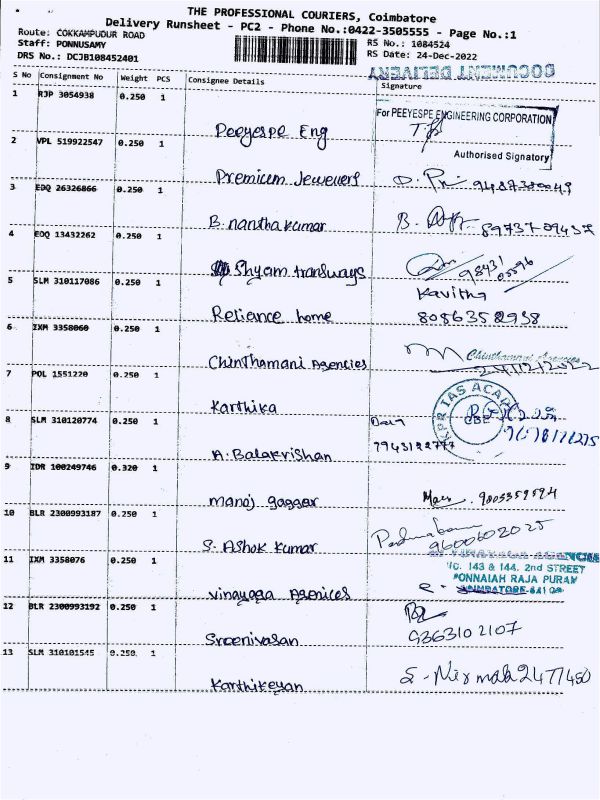 THE PROFESSIONAL COURIERS, Coimbatore
Delivery Runsheet - PC2 - Phone No.:0422-3505555 - Page No.:1
Route: COKKAMPUDUR ROAD
Staff: PONNUSAMY
DRS No.: DCJB108452401
RS No.: 1084524
RS Date: 24-Dec-2022
DOCUMENT DELIVERY
S No Consignment No Weight PCS Consignee Details Signature
1 RJP 3054938 0.250 1
Peeyespe Eng
For PEEYESPE ENGINEERING CORPORATION
Authorised Signatory
2 VPL 519922547 0.250 1
Premium Jewellers
3 EDQ 26326866 0.250 1
B. nanthakumar
4 EDQ 13432262 0.250 1
Shyam transways
98431
05596
5 SLM 310117086 0.250 1
Reliance home
Kavitha
8086352938
6 IXM 3358060 0.250 1
Chinthamani Agencies
Chinthamani Agencies
24/12/2022
7 POL 1551220 0.250 1
Karthika
KPR IAS ACAD
CBE
8 SLM 310120774 0.250 1
A. Balakrishan
9 IDR 100249746 0.320 1
Manoj gaggar
10 BLR 2300993187 0.250 1
S. Ashok kumar
Padmabam
9600602025
11 IXM 3358076 0.250 1
Vinayaga Agenices
NO. 143 & 144. 2nd STREET
PONNAIAH RAJA PURAM
COIMBATORE-641 00
12 BLR 2300993192 0.250 1
Sreenivasan
9363102107
13 SLM 310101545 0.250 1
Karthikeyan
S. Nirmala 2477450